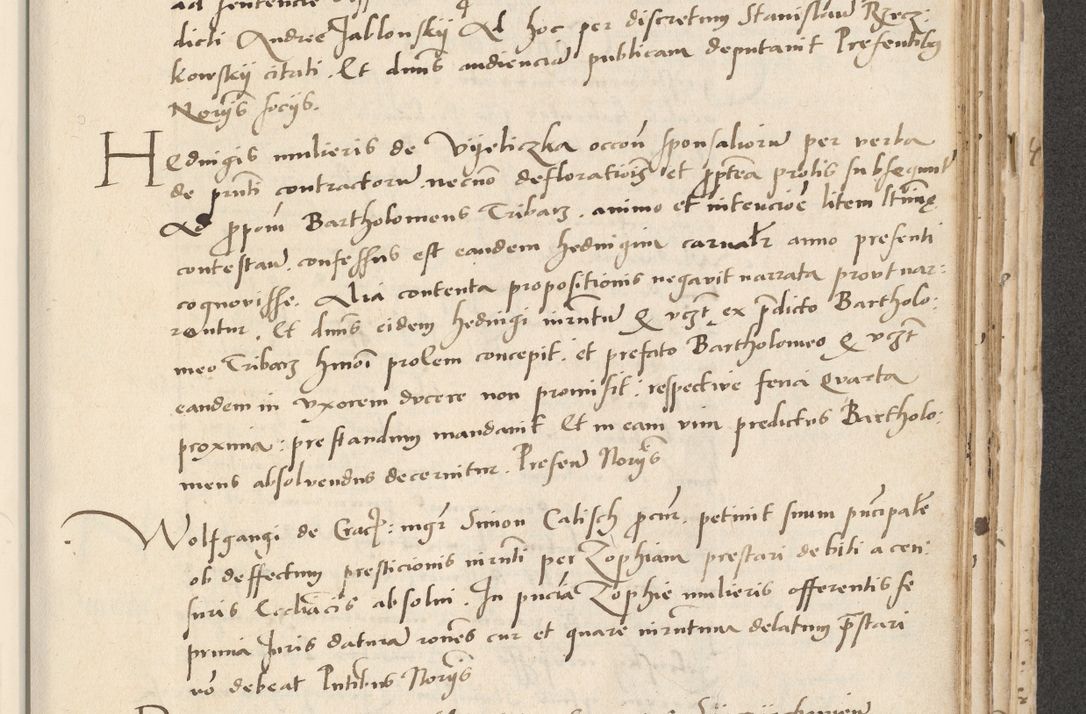 ad sententie
dicti Andree Jablonskij Ad hoc per discretum Stanislaũ Rzecz:
kowskij citati. Et dnũs audienciã publicam deputavit Presentibus
Norijs socijs.
Hedvigis mulieris de Vijeliczka occoñ sponsaliorũ per verba
de pñti contractorũ necnõ defloratiois et pptea prolis subsequute
Ad propoñ Bartholomeus Tribacz. animo et intencioẽ litem
contestañ. confessus est eandem hedvigim carnaliter anno presenti
cognovisse. Alia contenta propositionis negavit narrata provt nar:
rantur. Et dnũs eidem hedvigi iurñtũ q vczt ex pdicto Bartholo:
meo Tribacz hmõi prolem concepit. et prefato Bartholomeo q vczt
eandem in vxorem ducere non promisit: respective feria quarta
proxima: prestandum mandavit Et in eam vim predictus Bartholo:
meus absolvendus decernitur. Presen Norijs
Wolfgangi de Crac: mgr Simon Calisch pcur. petivit suum pñcipalẽ
ob deffectum presticionis iurñti per Zophiam prestari debiti a cen:
suris Ecclĩacis absolvi. In pñcia Zophie mulieris offerentis se
prima Juris datura roñes cur et quare iurñtum delatum pstari
nõ debeat Pñtibus Norijs